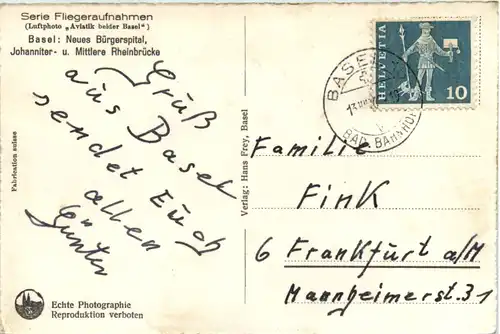 Serie Fliegeraufnahmen
(Luftphoto „Aviatik beider Basel")
Basel: Neues Bürgerspital,
Johanniter- u. Mittlere Rheinbrücke
Gruß
aus Basel
sendet Euch
allen
Günter
Fabrication suisse
Verlag: Hans Frey, Basel
Echte Photographie
Reproduktion verboten
HELVETIA
10
BASEL
13.
BAD. BAHNHOF
Familie
Fink
6 Frankfurt a/M
Mannheimerstr. 31